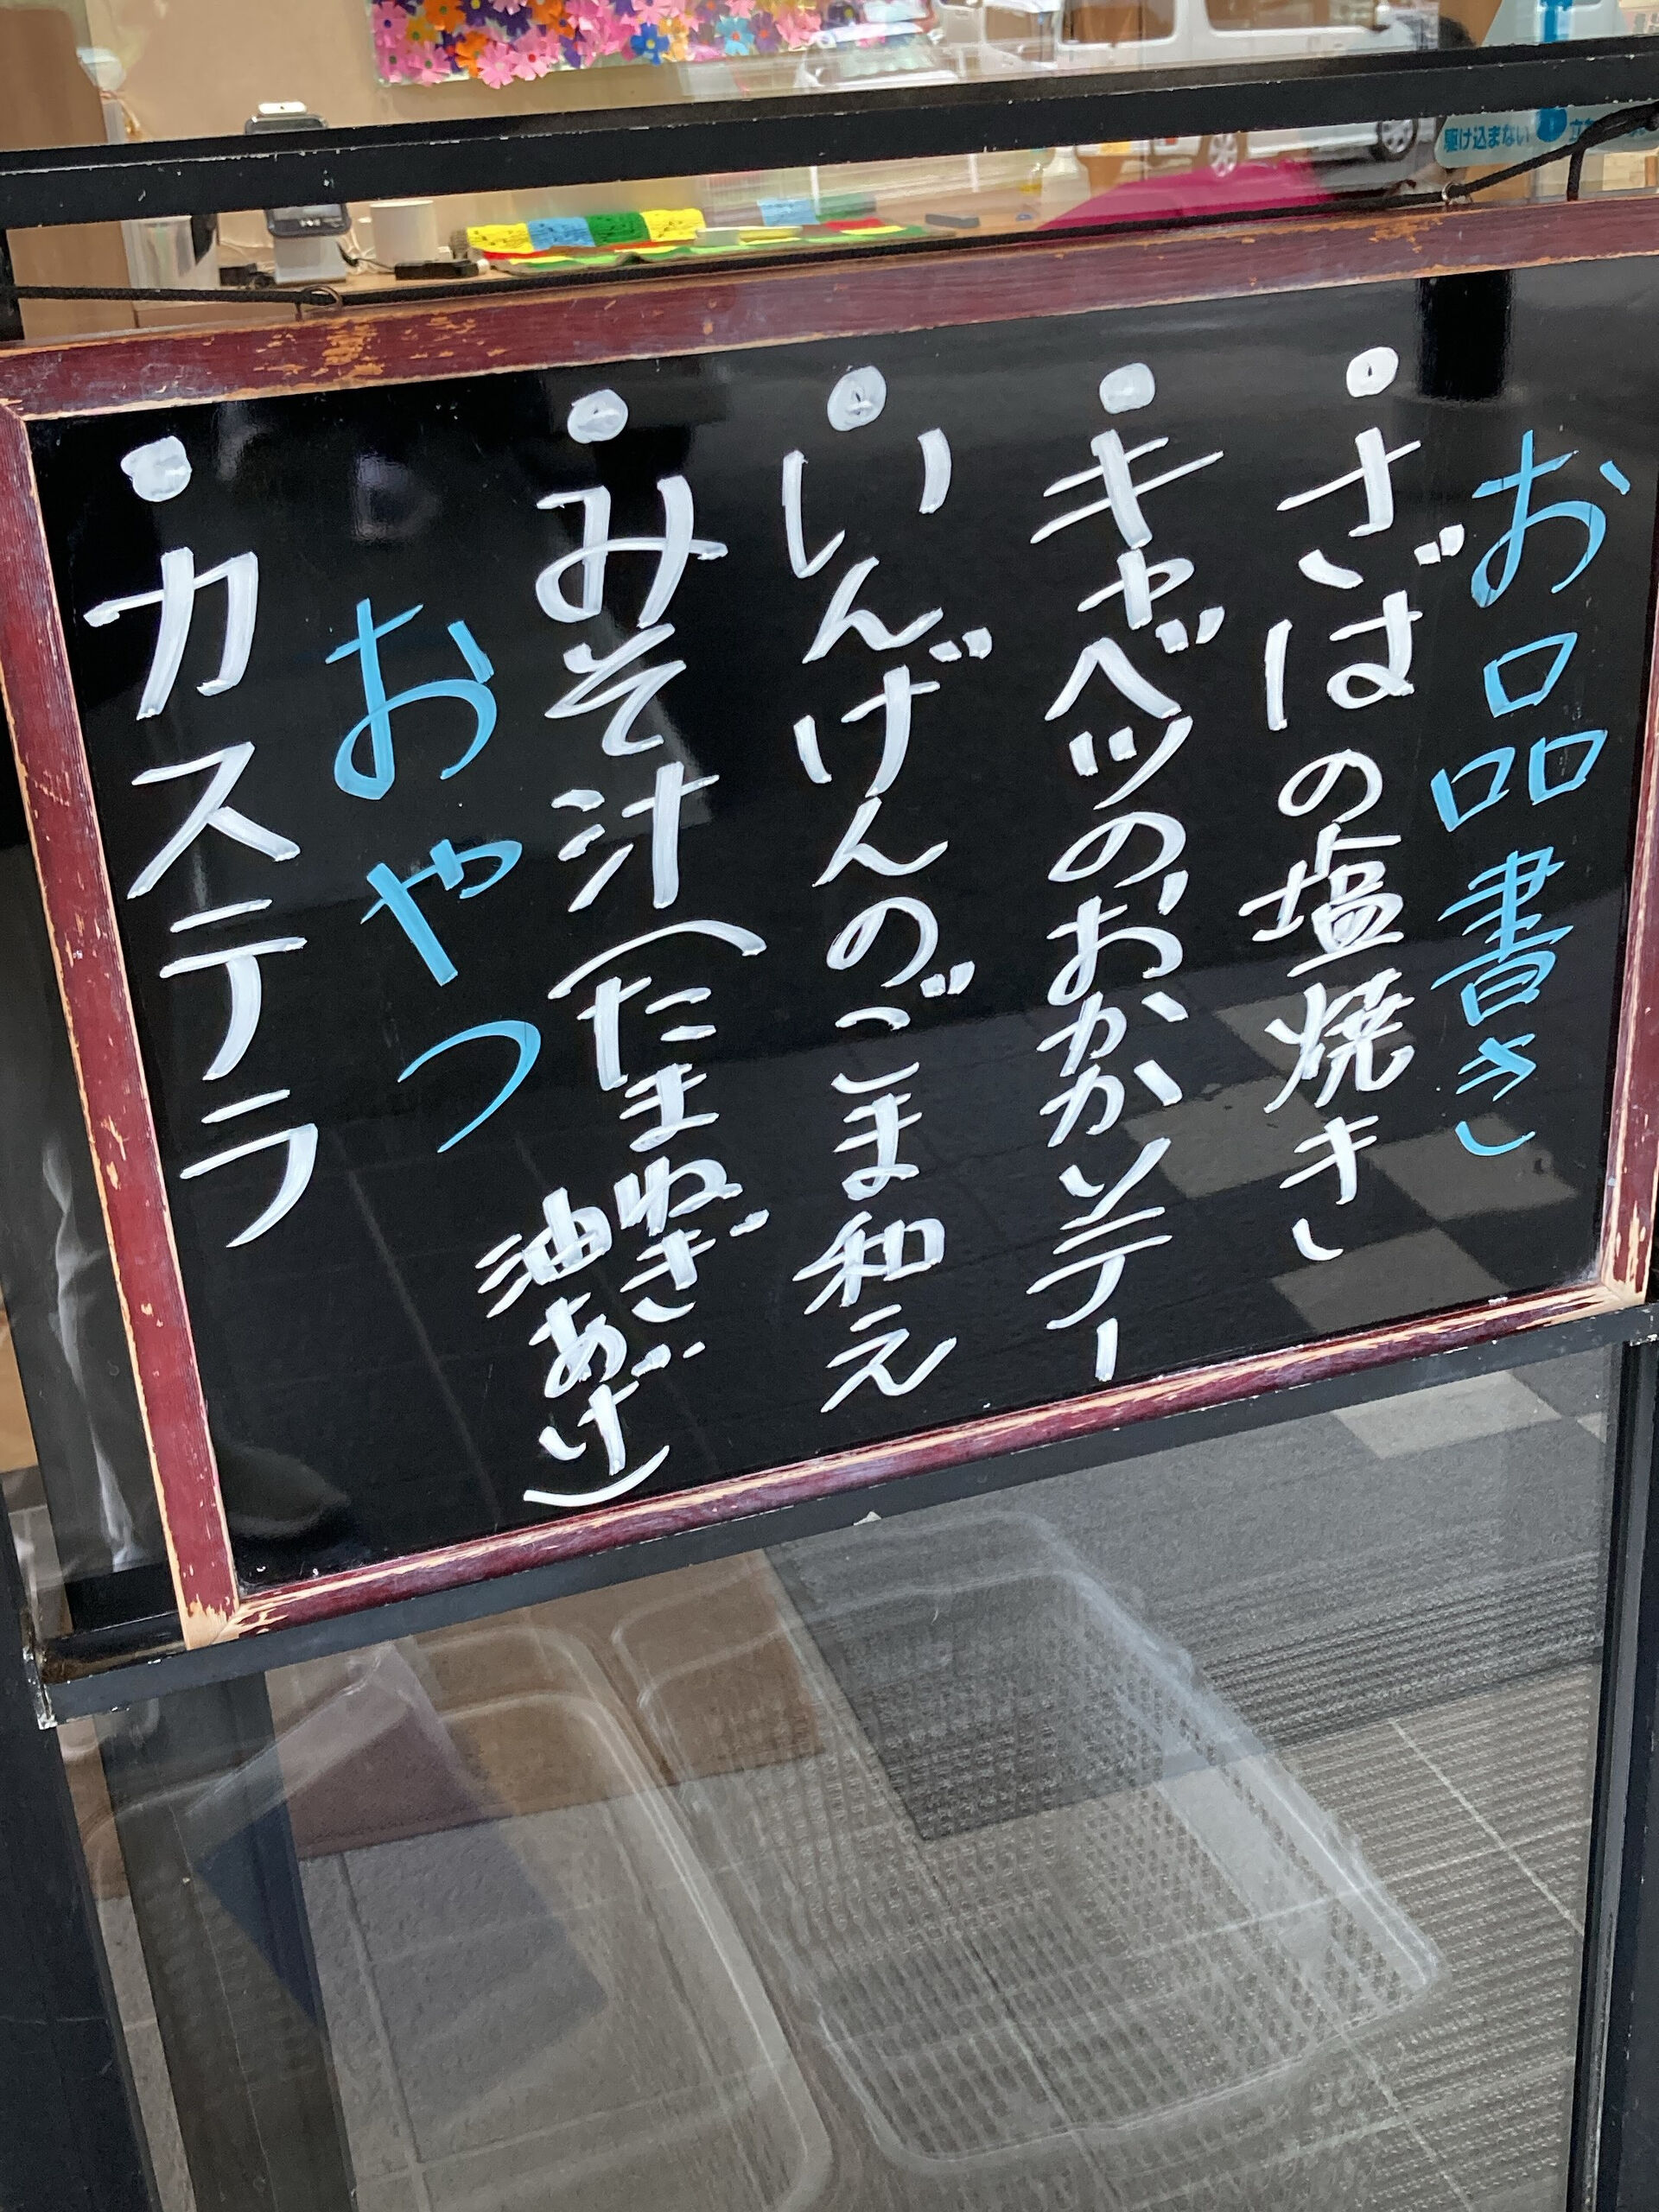 お品書き
・さばの塩焼き
・キャベツのおかかソテー
・いんげんのごま和え
・みそ汁(たまねぎ
油あげ)
おやつ
・カステラ
駆け込まない